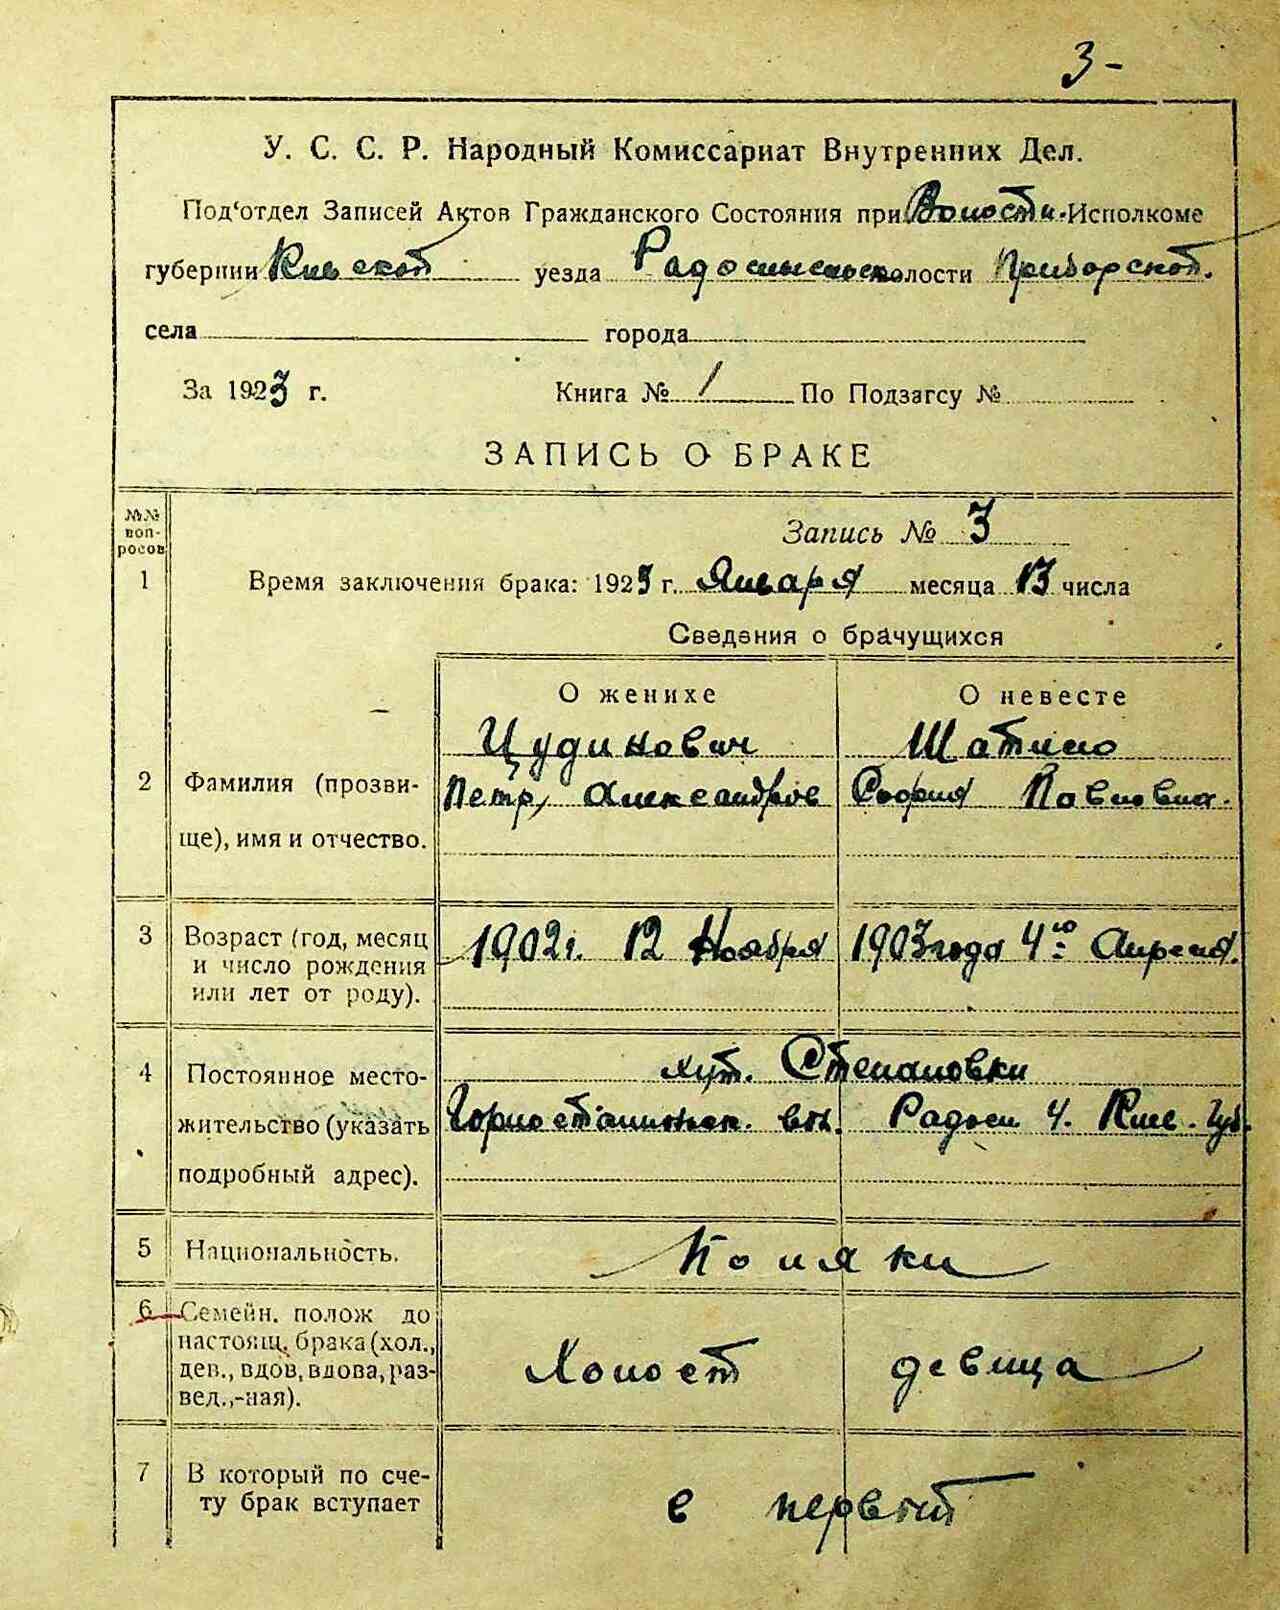 3-
У. С. С. Р. Народный Комиссариат Внутренних Дел.
Под‘отдел Записей Актов Гражданского Состояния при Волости.-Исполкоме
губернии Киевской уезда Радомысльск волости Приборской.
села города
За 1923 г. Книга № 1 По Подзагсу №
ЗАПИСЬ О БРАКЕ
№№ воп-росов
Запись № 3
1 Время заключения брака: 1923 г. Января месяца 13 числа
Сведения о брачущихся
О женихе О невесте
Цудинович Шатило
2 Фамилия (прозви- Петр, Александров София Павловна.
ще), имя и отчество.
3 Возраст (год, месяц 1902 г. 12 Ноября 1903 года 4го Апреля.
и число рождения
или лет от роду).
4 Постоянное место- хут. Степановки
жительство (указать Горностайпольск. вол. Радом. у. Киев. губ.
подробный адрес).
5 Национальность. Поляки
6 Семейн. полож до
настоящ. брака (хол., Холост девица
дев., вдов, вдова, раз-
вед.,-ная).
7 В который по сче-
ту брак вступает в первый